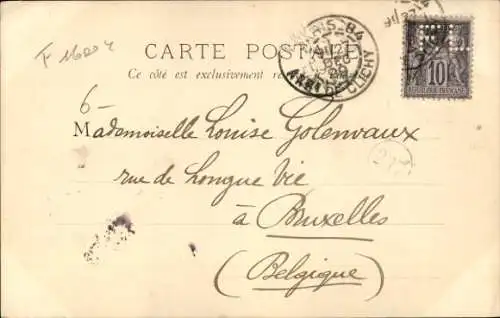 F 16804
CARTE POSTALE
Ce côté est exclusivement
PARIS-84
CLICHY
10
6-
Mademoiselle Louise Golenvaux
rue de Longue Vie
à Bruxelles
(Belgique)